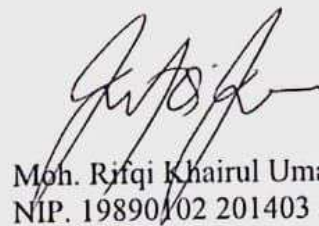 Moh. Rifqi Khairul Uma
NIP. 19890102 201403